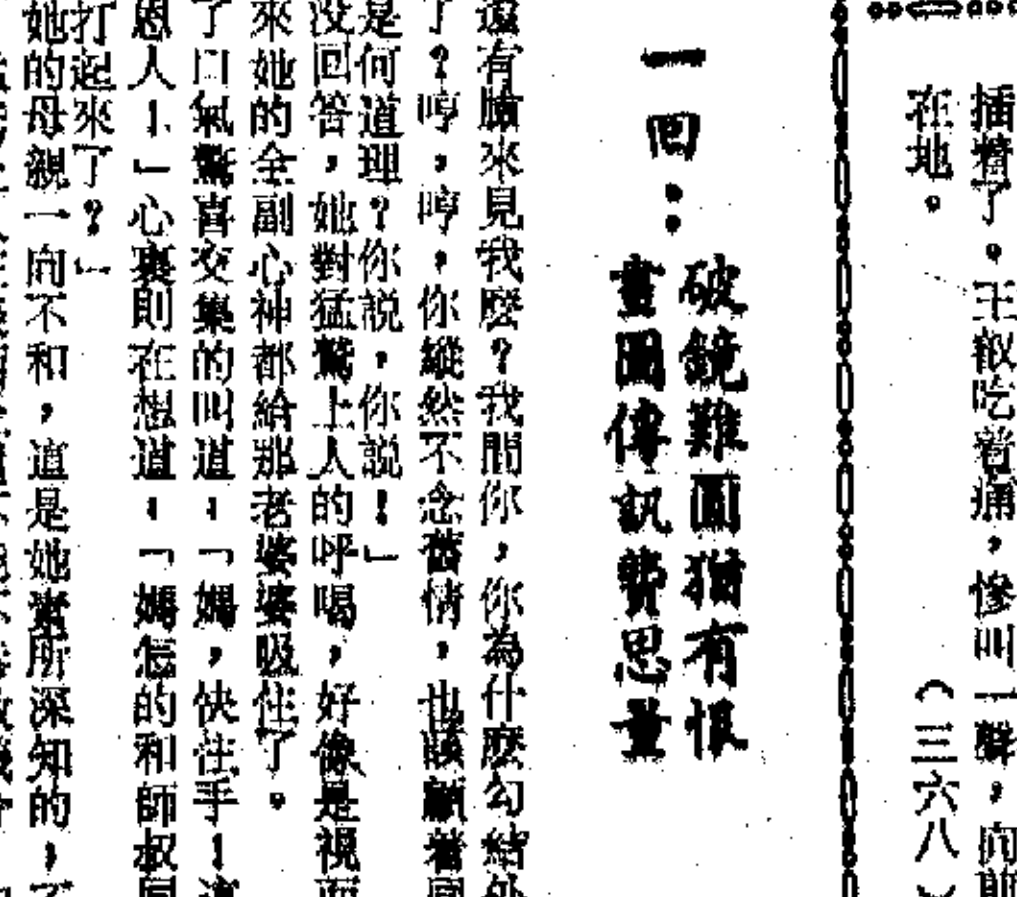 插着了。王叡吃着痛，慘叫一聲，向前
在地。
（三六八）
一回：
破鏡難圓猶有恨
畫圖傳訊費思量
還有臉來見我麽？我問你，你為什麽勾結外
了？哼，哼，你縱然不念舊情，也該顧着
是何道理？你説，你説！」
没回答，她對猛鷲上人的呼喝，好像是視而
來她的全副心神都給那老婆婆吸住了。
了口氣驚喜交集的叫道：「媽，快住手！這
恩人！」心裏則在想道：「媽怎的和師叔
打起來了？」
她的母親一向不和，這是她素所深知的，